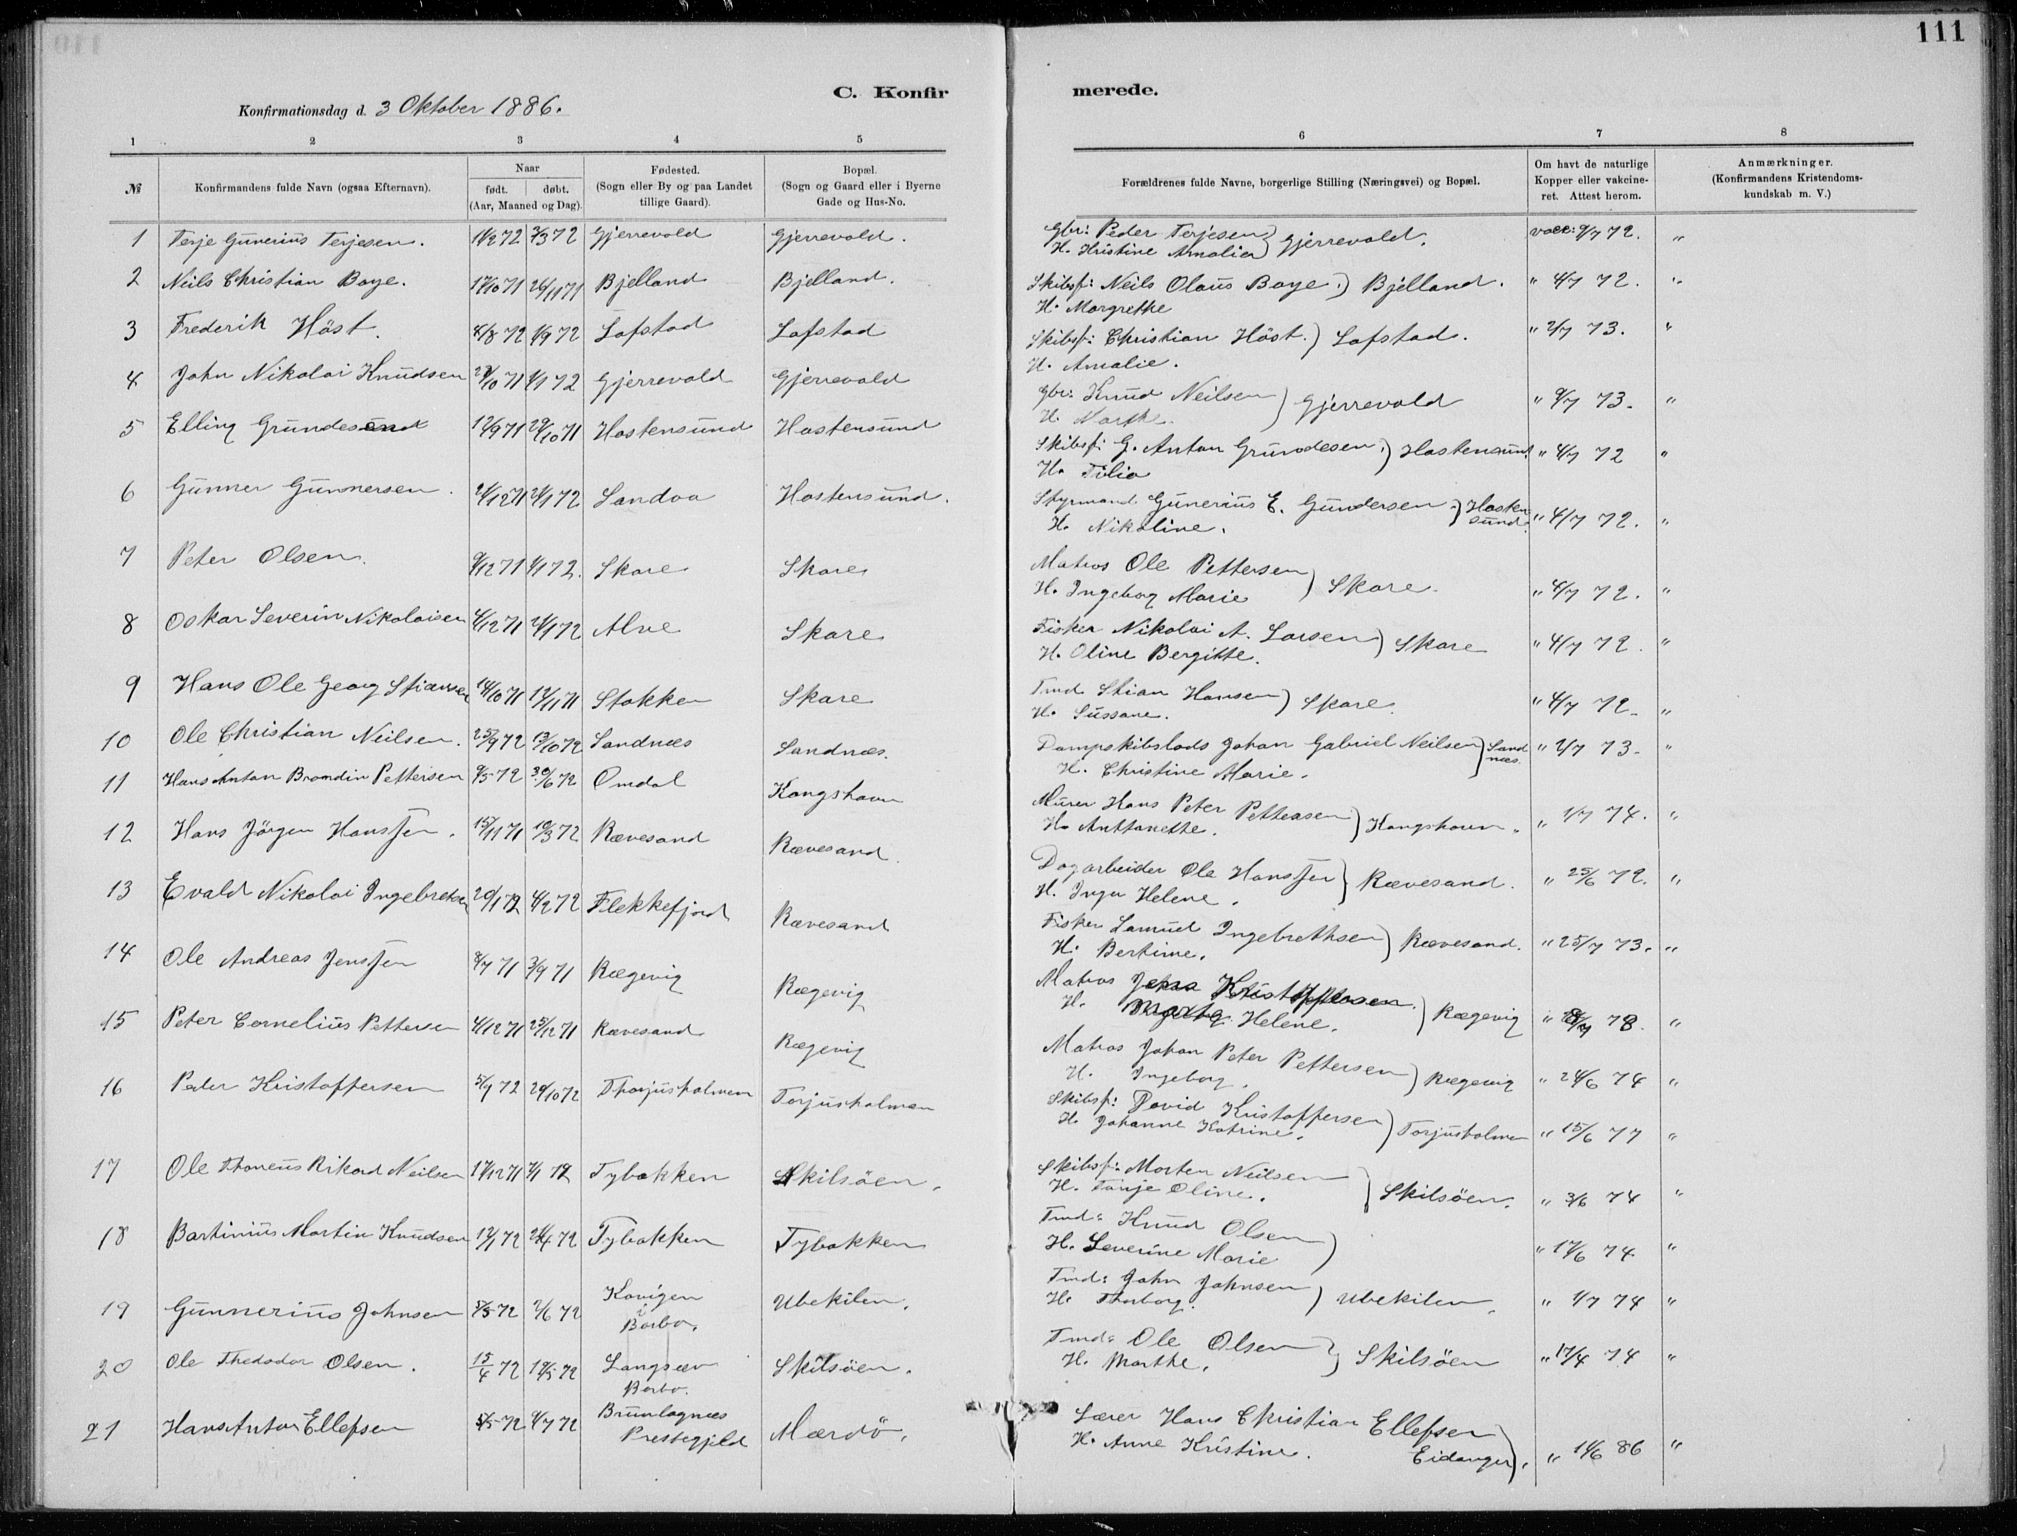 111
C. Konfirmerede.
Konfirmationsdag d. 3 Oktober 1886.
1 2 3 4 5 6 7 8
№ Konfirmandens fulde Navn (ogsaa Efternavn). Naar født. døbt. (Aar, Maaned og Dag). Fødested. (Sogn eller By og paa Landet tillige Gaard). Bopæl. (Sogn og Gaard eller i Byerne Gade og Hus-No. Forældrenes fulde Navne, borgerlige Stilling (Næringsvei) og Bopæl. Om havt de naturlige Kopper eller vakcineret. Attest herom. Anmærkninger. (Konfirmandens Kristendomskundskab m. V.)
1 Terje Gunerius Terjesen. 11/2 72 3/3 72 Gjerrevold Gjerrevold. Gbr: Peder Terjesen) Gjerrevold. vacc: 9/7 72. "
H. Kristine Amalie
2 Neils Christian Boye. 17/10 71 26/11 71 Bjelland Bjelland. Skibsf: Neils Olaus Boye.) Bjelland. " 4/7 72. "
H. Margrethe
3 Frederik Höst. 8/8 72 1/9 72 Lofstad Lofstad Skibsf: Christian Höst.) Lofstad. " 2/7 73. "
H. Amalie.
4 John Nikolai Knudsen 29/10 71 1/1 72 Gjerrevold Gjerrevold Gbr: Knud Neilsen) Gjerrevold " 9/7 73. "
H. Marth.
5 Elling Grundesen 12/9 71 29/10 71 Hastensund Hastensund Skibsf: G. Anton Grundesen.) Hastensund " 4/7 72 "
H. Tilia
6 Gunner Gunnersen. 21/12 71 21/1 72 Sandva Hastensund. Styrmand Gunerius E. Gundersen.) Hastensund " 4/7 72. "
H. Nikoline.
7 Peter Olsen. 9/12 71 1/1 72. Skare Skare Matros Ole Pettersen) Skare. " 4/7 72. "
H. Ingeborg Marie
8 Oskar Severin Nikolaisen 4/12 71 21/1 72 Alve Skare Fisker Nikolai A. Larsen) Skare " 4/7 72. "
H. Oline Bergitte.
9 Hans Ole Georg Stiansen 14/10 71 12/11 71 Stokken Skare Tmd Stian Hansen) Skare. " 4/7 72. "
H. Sussane.
10 Ole Christian Neilsen. 25/9 72 13/10 72 Sandnæs Sandnæs. Dampskibslods Johan Gabriel Neilsen) Sandnæs. " 2/7 73. "
H. Christine Marie.
11 Hans Anton Bromdin Pettersen 9/5 72 30/6 72 Omdal Kongshavn Murer Hans Peter Pettersen) Kongshavn. " 1/7 74. "
H. Anttonette.
12 Hans Jörgen Hanssen. 15/11 71 10/3 72 Rævesand Rævesand. Dagarbeider Ole Hanssen) Rævesand. " 25/6 72. "
H. Inger Helene.
13 Evald Nikolai Ingebretsen 20/1 72 4/2 72 Flekkefjord Rævesand Fisker Samuel Ingebrethsen) Rævesand. " 25/7 73. "
H. Bertine.
14 Ole Andreas Jenssen 8/7 71 3/9 71 Rægevig Rægevig Matros Jens Kristoffersen.) Rægevig " 78. "
H. Helene.
15 Peter Cornelius Pettersen 4/12 71 25/12 71 Rævesand Rægevig Matros Johan Peter Pettersen) Rægevig " 24/6 74 "
H. Ingeborg.
16 Peder Kristoffersen 5/9 72 29/10 72 Thorjusholmen Torjusholmen Skibsf: David Kristoffersen) Torjusholmen " 15/6 77 "
H. Johanne Katrine.
17 Ole Thoneus Rikard Neilsen 17/12 71 7/1 72 Tybakken Skilsöen. Skibsf: Morten Neilsen) Skilsöen. " 3/6 74 "
H. Tonje Oline.
18 Bartinius Martin Knudsen 12/1 72 21/4 72 Tybakken Tybakken Tmd: Knud Olsen) " 17/6 74 "
H. Severine Marie
19 Gunnerius Johnsen 5/5 72 2/6 72 Kovigen i Barbo. Ubekilen. Tmd: John Johnsen) Ubekilen. " 1/7 74 "
H. Thorborg.
20 Ole Thedodor Olsen. 15/4 72 19/5 72 Langsæv Barbo. Skilsöen. Tmd: Ole Olsen) Skilsöen " 17/4 74 "
H. Marthe.
21 Hans Anton Ellefsen 5/5 72 4/7 72 Brunlagnæs Prestegjeld Mærdö. Lærer Hans Christian Ellefsen) Eidanger. " 14/6 86 "
H. Anne Kristine.